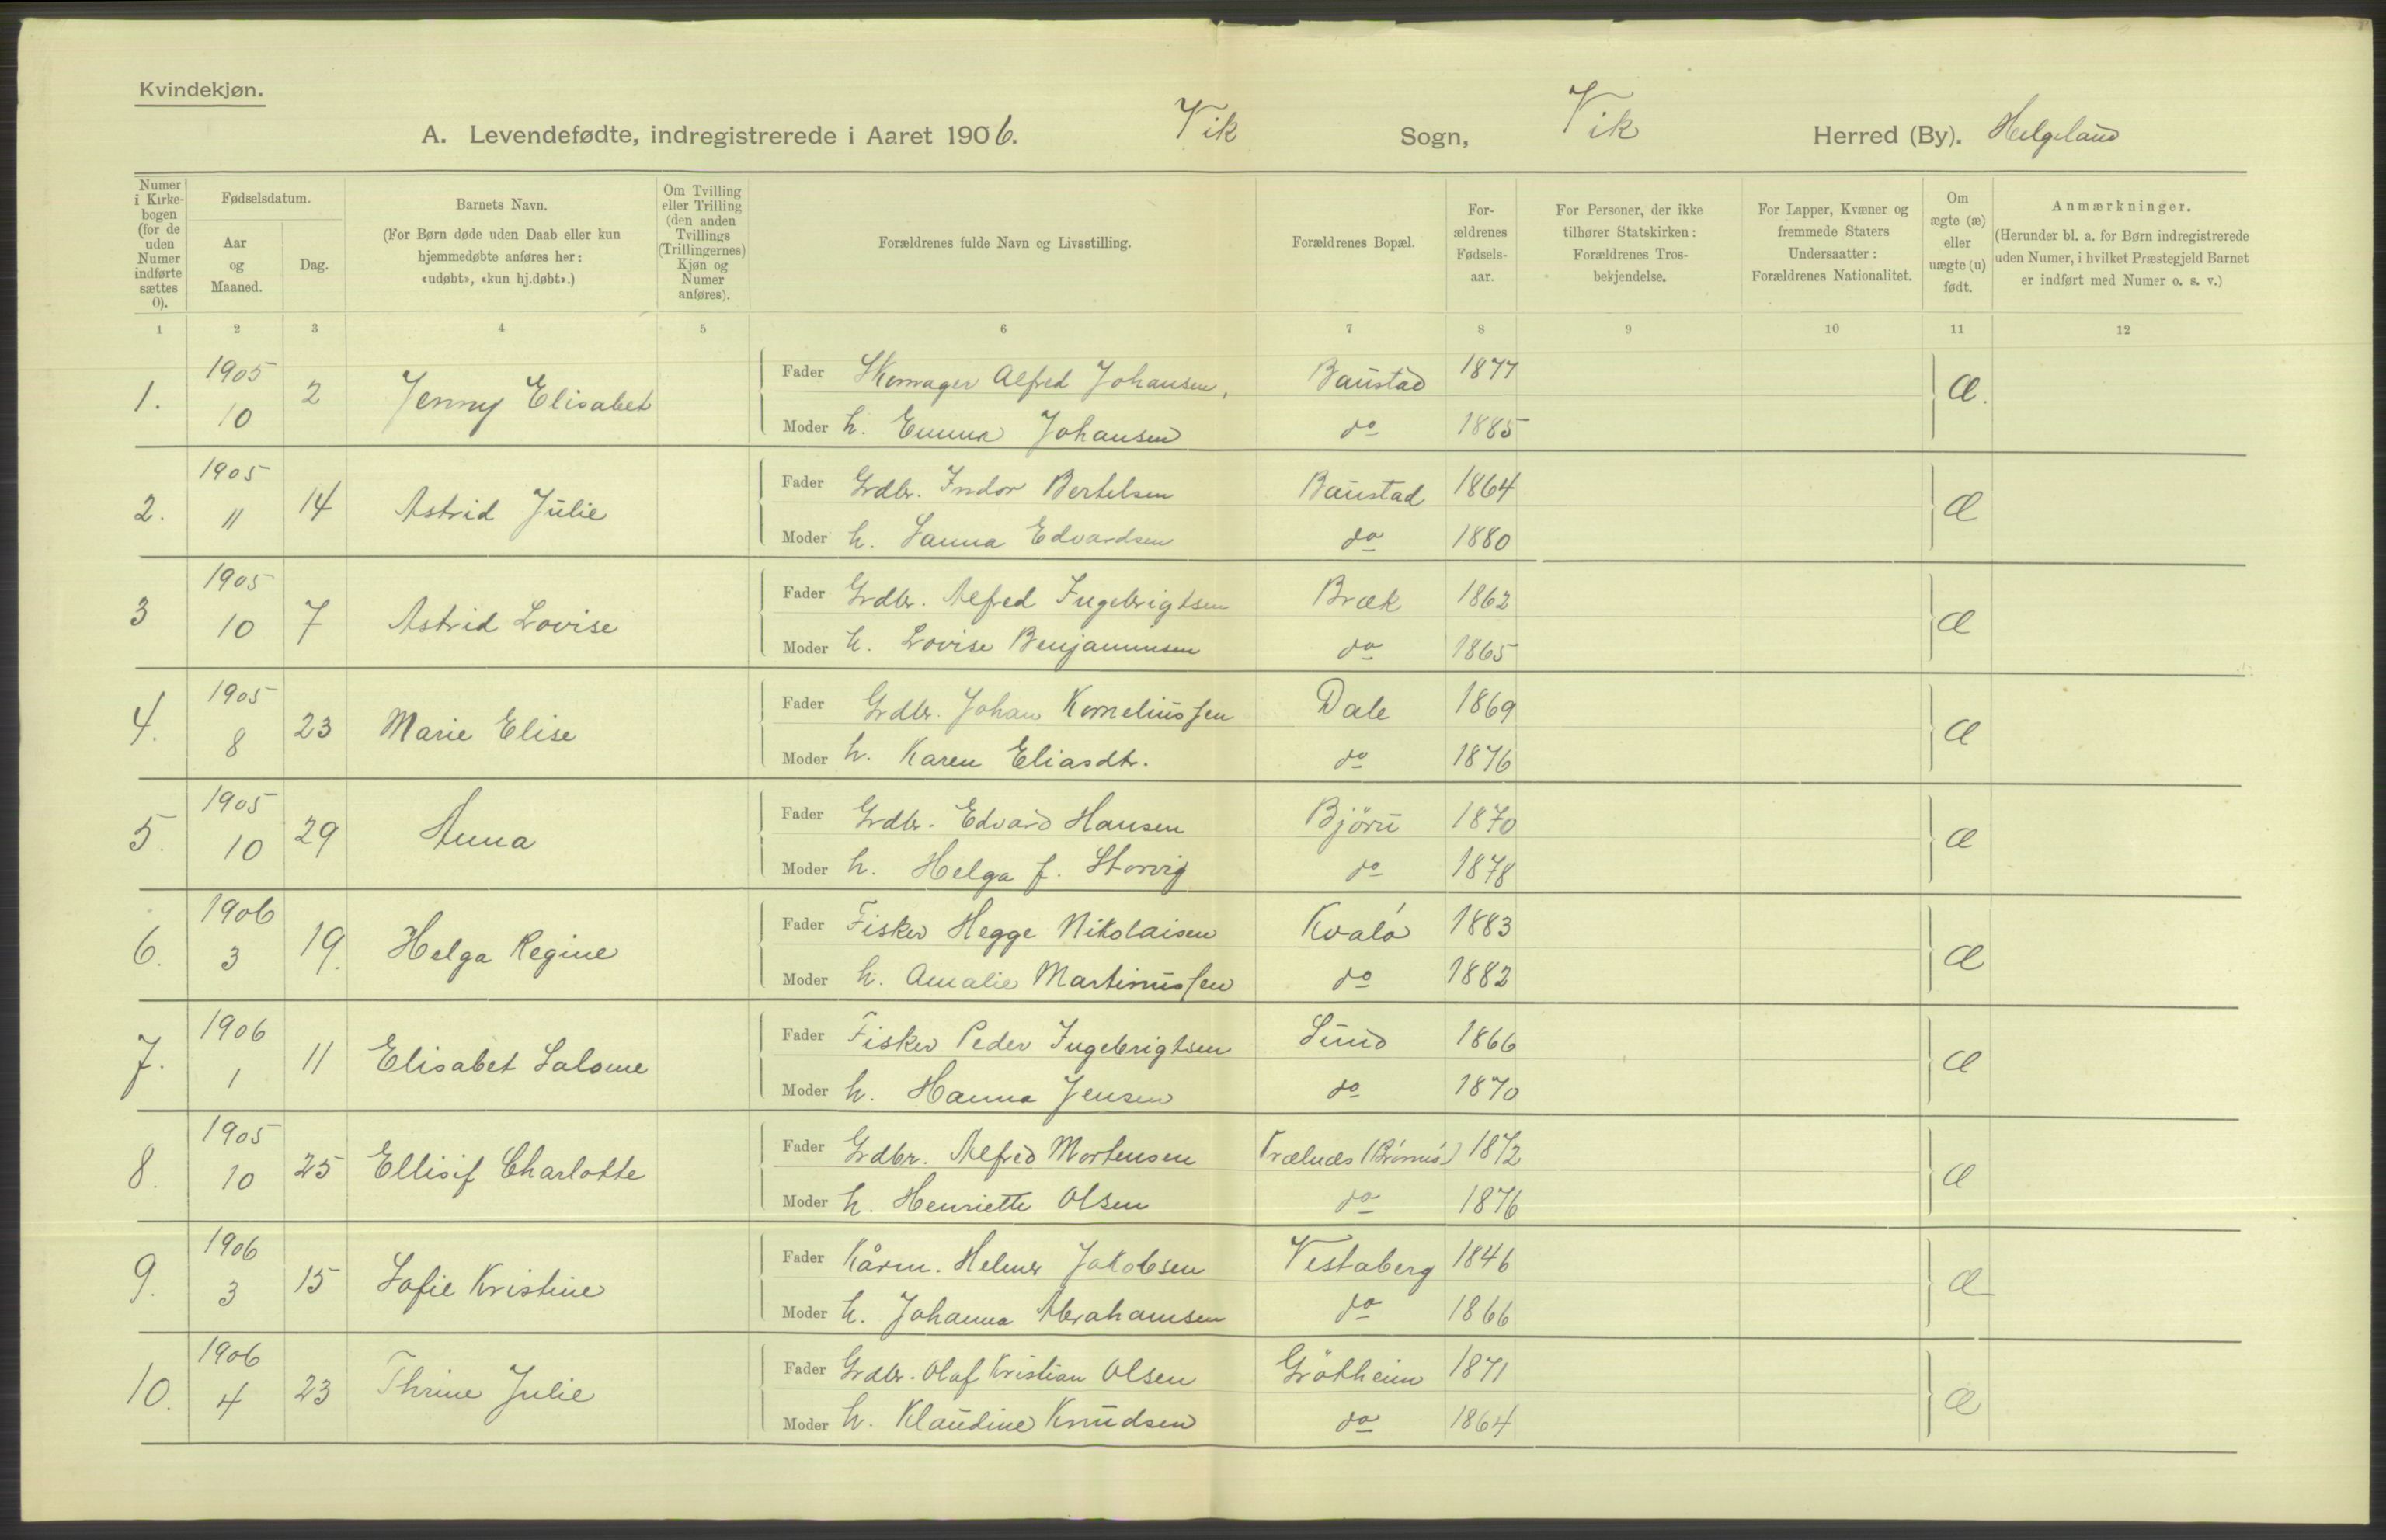 Kvindekjøn.
A. Levendefødte, indregistrerede i Aaret 1906. Vik Sogn, Vik Herred (By). Helgeland
Numer i Kirkebogen (for de uden Numer indførte sættes 0).
Fødselsdatum.
Aar og Maaned.
Dag.
Barnets Navn.
(For Børn døde uden Daab eller kun hjemmedøbte anføres her: «udøbt», «kun hj.døbt».)
Om Tvilling eller Trilling (den anden Tvillings (Trillingernes) Kjøn og Numer anføres).
Forældrenes fulde Navn og Livsstilling.
Forældrenes Bopæl.
Forældrenes Fødselsaar.
For Personer, der ikke tilhører Statskirken: Forældrenes Trosbekjendelse.
For Lapper, Kvæner og fremmede Staters Undersaatter: Forældrenes Nationalitet.
Om ægte (æ) eller uægte (u) født.
Anmærkninger.
(Herunder bl. a. for Børn indregistrerede uden Numer, i hvilket Præstegjeld Barnet er indført med Numer o. s. v.)
1 2 3 4 5 6 7 8 9 10 11 12
1. 1905 10 2 Jenny Elisabet Fader Skomager Alfred Johansen, Baustad 1877 Æ.
Moder h. Emma Johansen do 1885
2. 1905 11 14 Astrid Julie Fader Grdbr. Indor Bertelsen Baustad 1864 Æ
Moder h. Sanna Edvardsen do 1880
3 1905 10 7 Astrid Lovise Fader Grdbr. Alfred Ingebrigtsen Bræk 1862 Æ
Moder h. Lovise Benjaminsen do 1865
4. 1905 8 23 Marie Elise Fader Grdbr. Johan Korneliussen Dale 1869 Æ
Moder h. Karen Eliasdtr. do 1876
5. 1905 10 29 Anna Fader Grdbr. Edvard Hansen Björn 1870 Æ
Moder h. Helga f. Storvig do 1878
6. 1906 3 19. Helga Regine Fader Fisker Hegge Nikolaisen Kvalø 1883 Æ
Moder h. Amalie Martinussen do 1882
7. 1906 1 11 Elisabet Salome Fader Fisker Peder Ingebrigtsen Sund 1866 Æ
Moder h. Hanna Jensen do 1870
8. 1905 10 25 Ellisif Charlotte Fader Grdbr. Alfred Mortensen Trælnæs (Brønnø) 1872 Æ
Moder h. Henriette Olsen do 1876
9. 1906 3 15 Sofie Kristine Fader Kårm. Helmer Jakobsen Vestaberg 1846 Æ
Moder h. Johanna Abrahamsen do 1866
10. 1906 4 23 Thrine Julie Fader Grdbr. Olaf Kristian Olsen Grötheim 1871 Æ
Moder h. Klaudine Knudsen do 1864